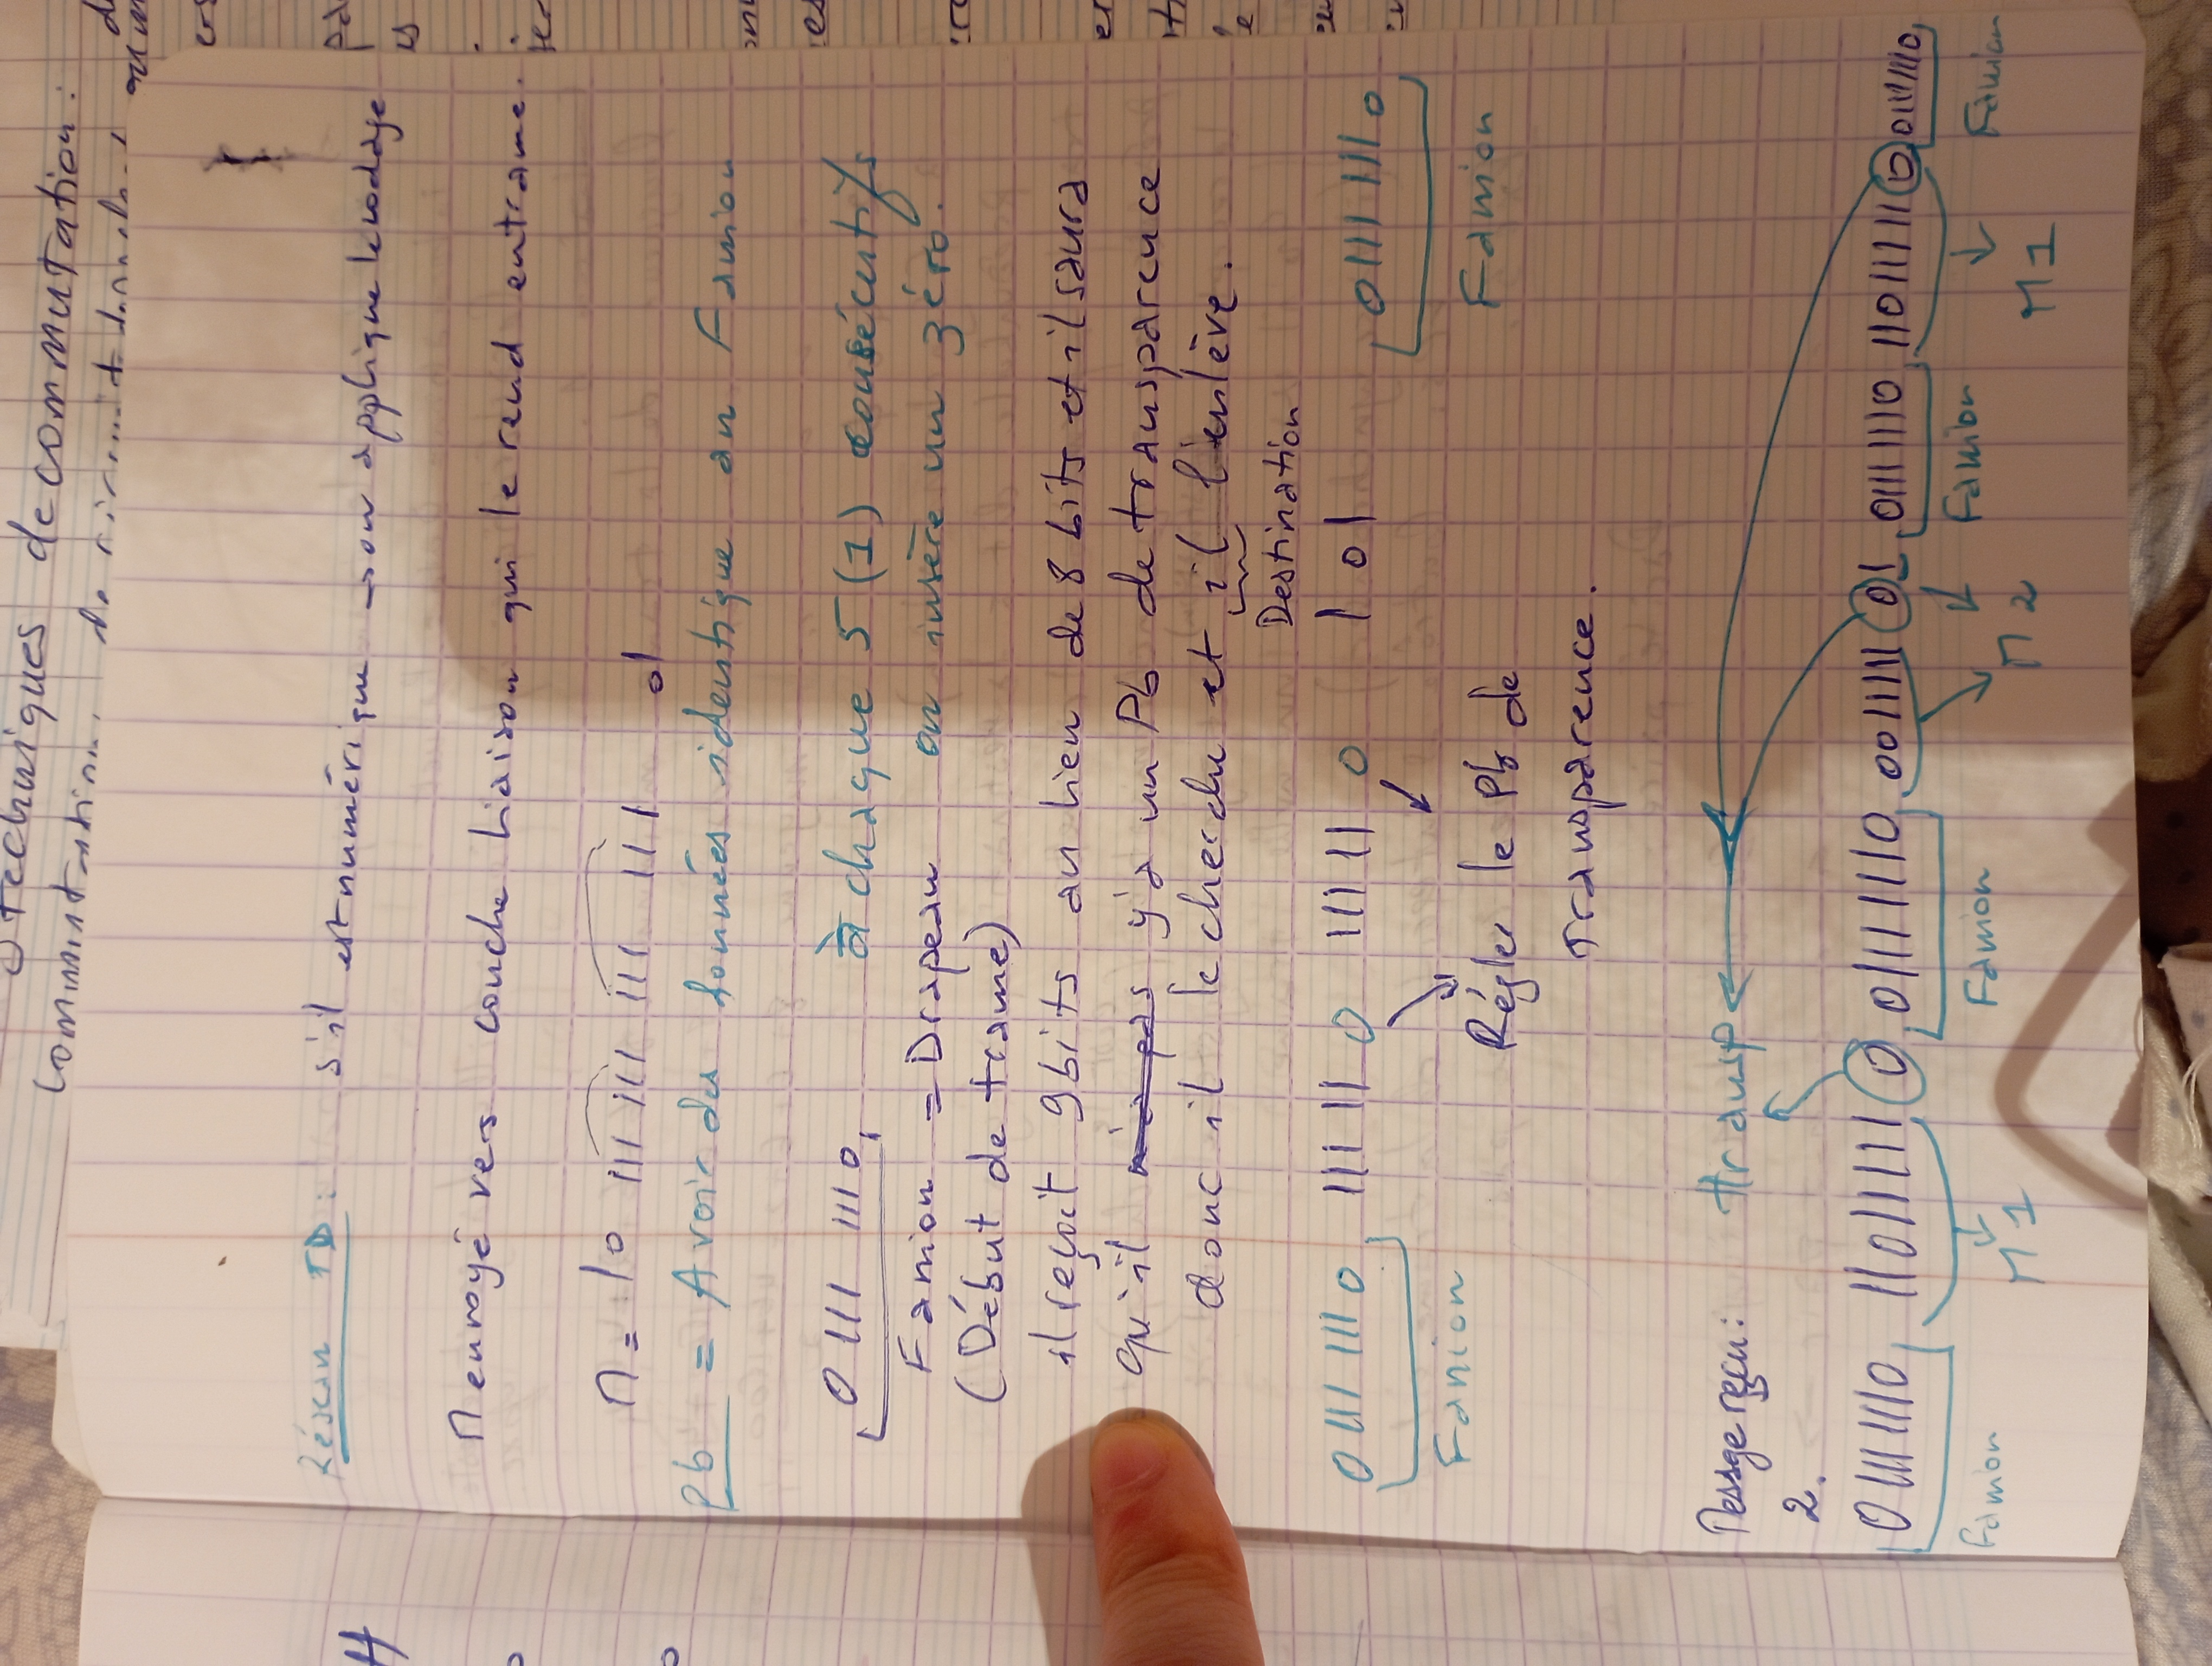 Techniques de commutation :
Réseau TD :
s'il est numérique → on applique le codage
M envoyé vers couche liaison qui le rend en trame.
M = 10 111 111 111 111 01
Pb = Avoir des données identique au Fanion
0 111 1110, à chaque 5 (1) consécutifs
Fanion = Drapeau on insère un zéro.
(Début de trame)
il reçoit 9 bits au lieu de 8 bits et il saura
qu'il y'a un Pb de transparence
donc il le cherche et il l'enlève.
Destination
0 111 111 0 111 11 0 111 11 0 1 01 0 111 111 0
Fanion Fanion
Régler le Pb de
Transparence.
Message reçu : transp
2.
01111110 11011111 0 01111110 0011111 0 1 01111110 11011111 0 01111110
Fanion M1 Fanion M2 Fanion M1 Fanion